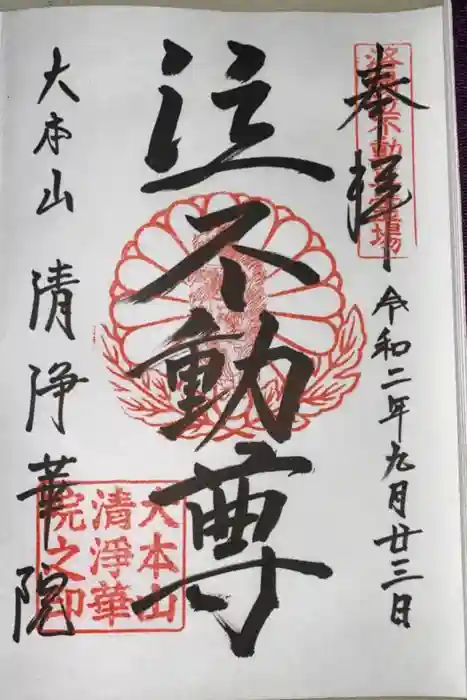 奉拝
令和二年九月廿三日
不動
場
泣不動尊
大本山 清浄華院
大本山
清淨華
院之印